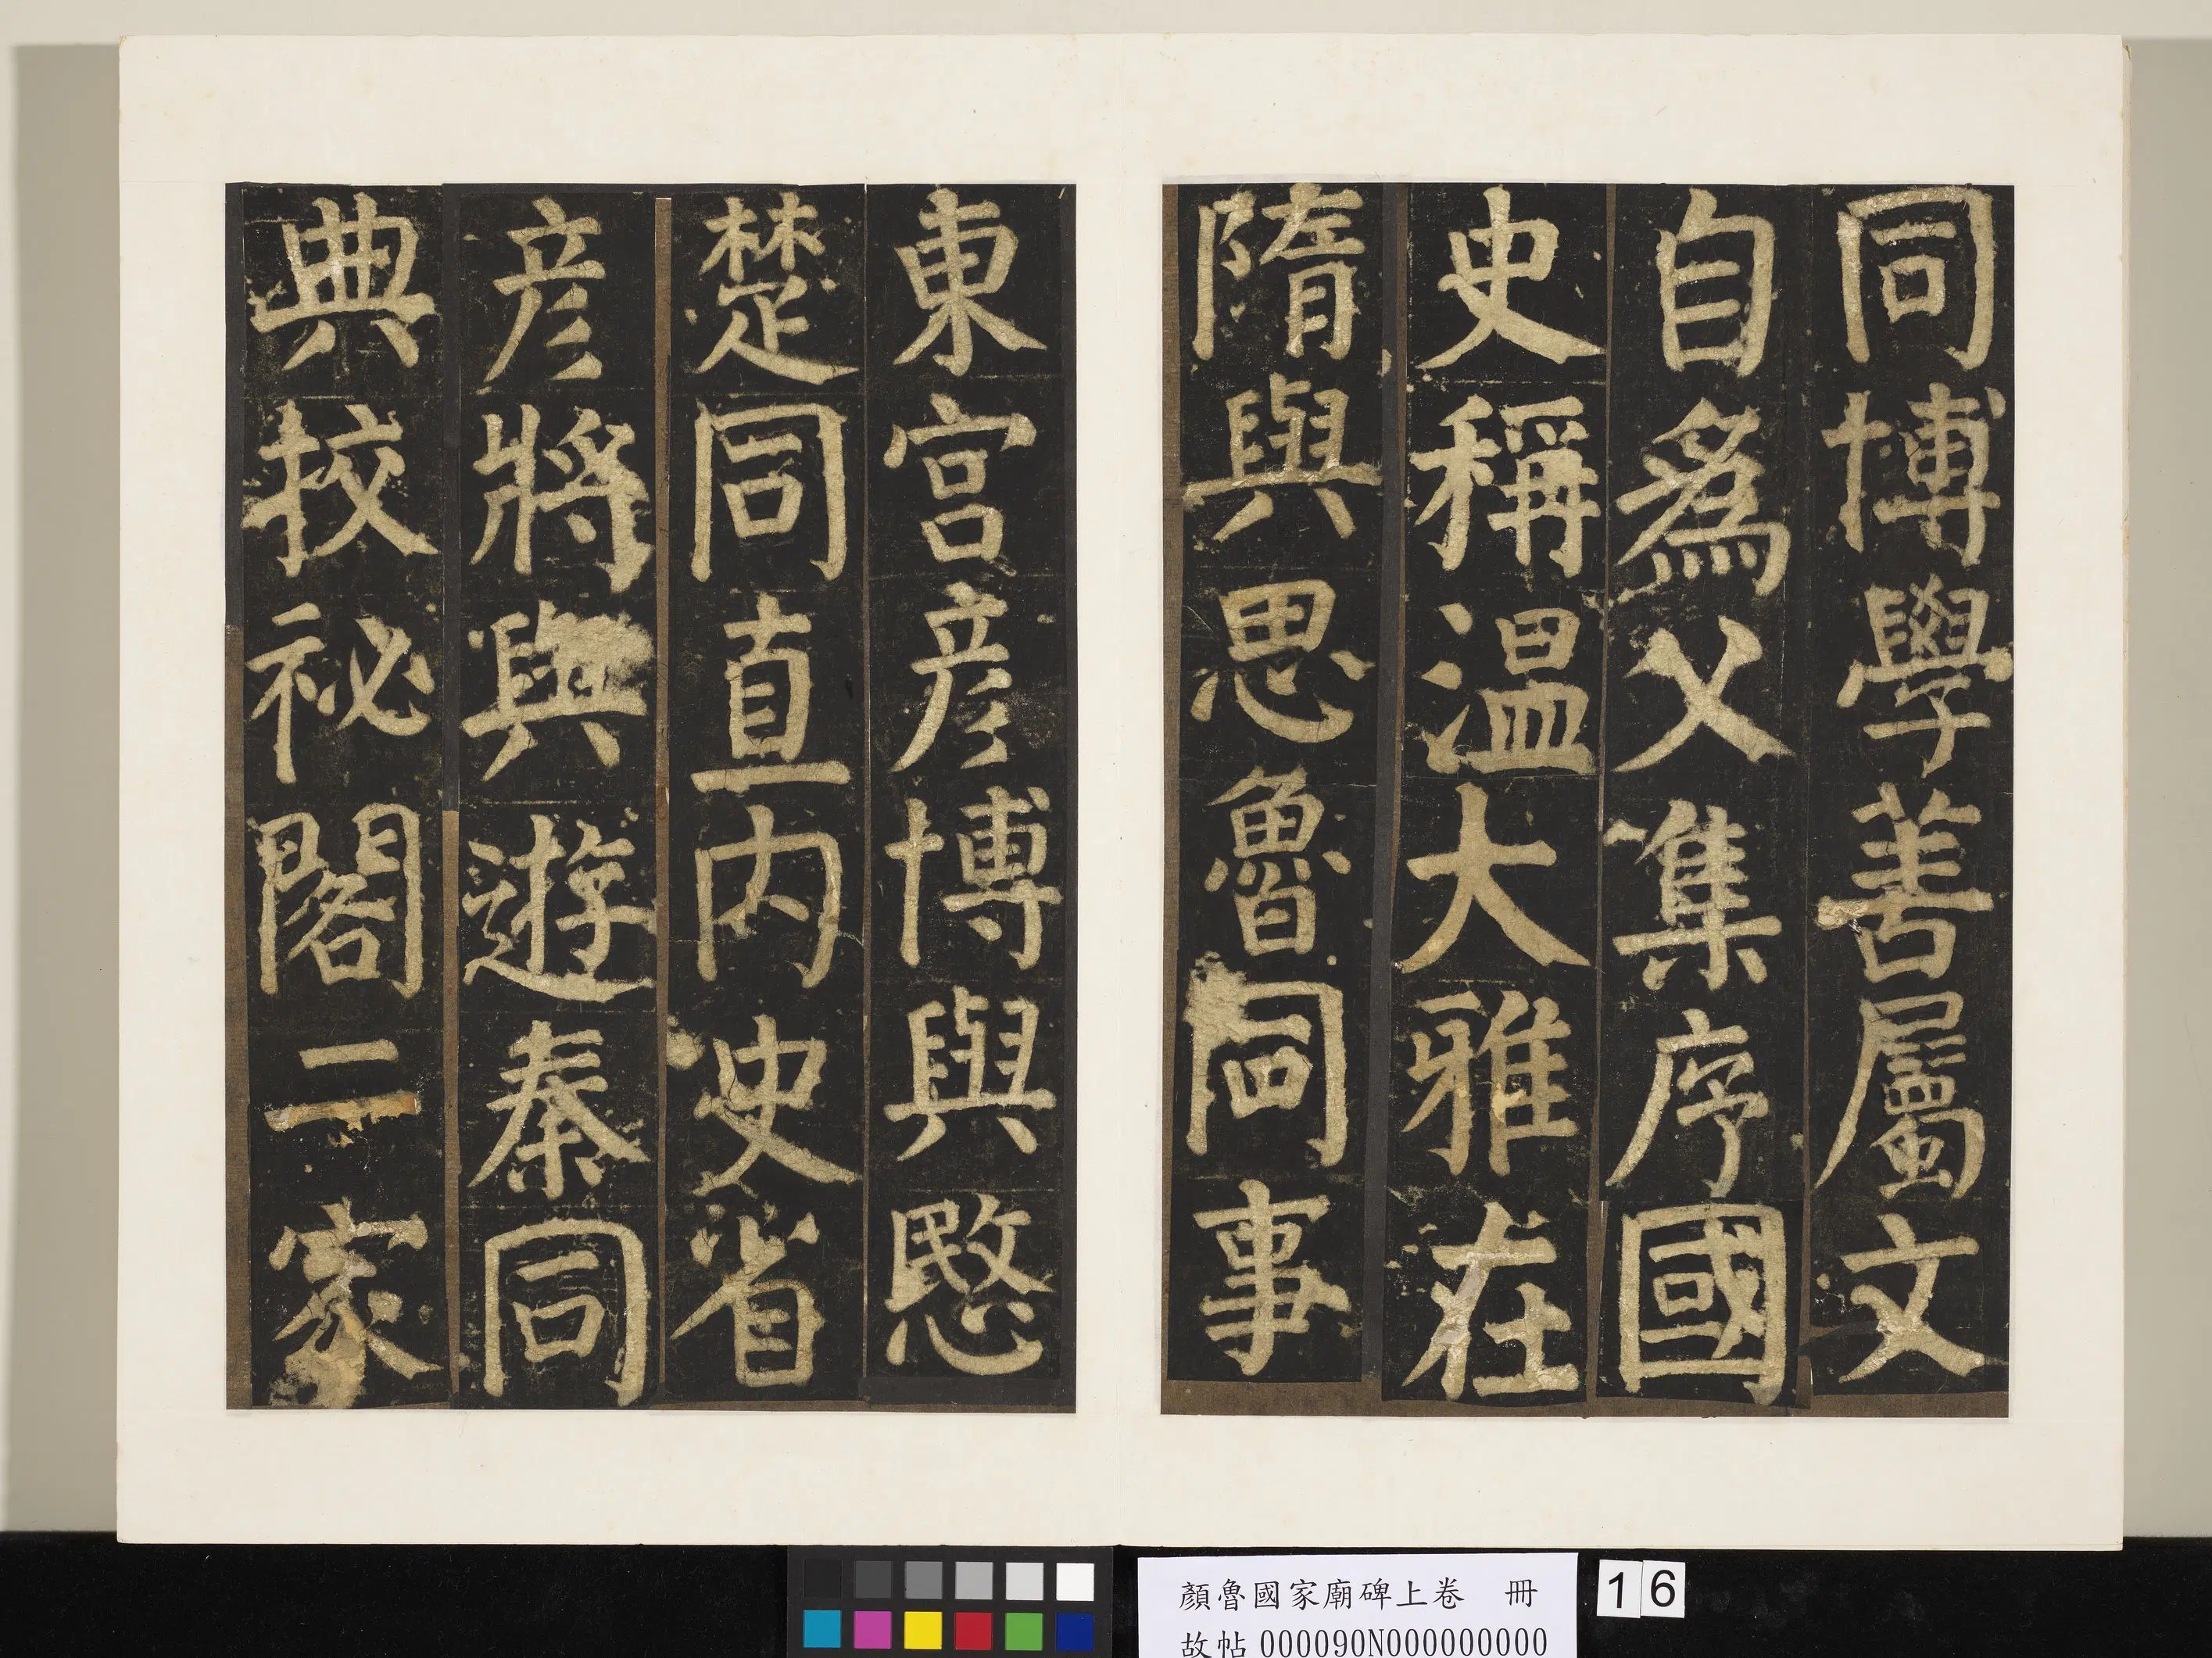 同博學善屬文
自為父集序國
史稱温大雅在
隋與思魯同事
東宮彥博與愍
楚同直內史省
彥將與遊秦同
典挍祕閣二家
顏魯國家廟碑上卷 冊
故帖000090N000000000
16